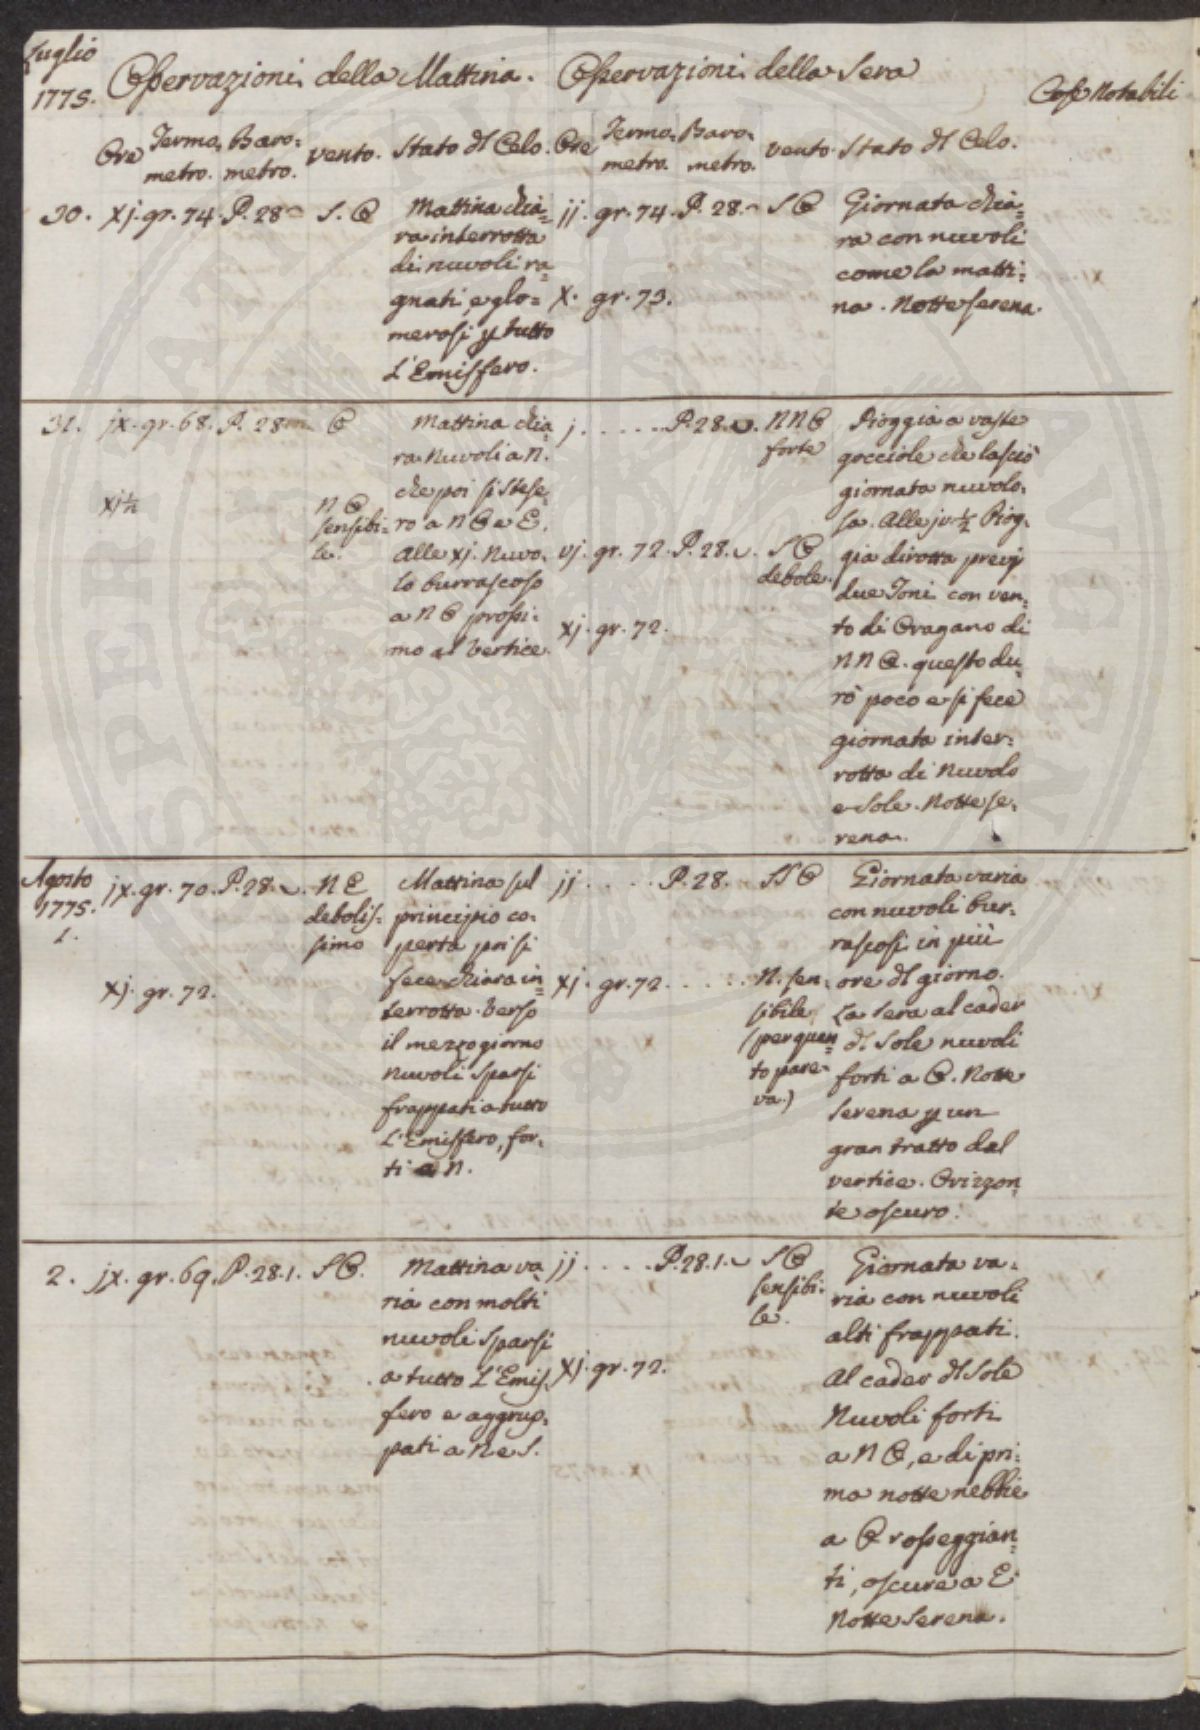 Luglio
1775.
Osservazioni della Mattina. Osservazioni della Sera
Cose Notabili
Ore Termometro. Barometro. vento. Stato dl Celo. Ore Termometro. Barometro. vento. Stato dl Celo.
30. xj. gr. 74. P. 28 S. O
Mattina chia=
ra interrotta
di nuvoli ra=
gnati, e glo=
merosi p tutto
L'Emissfero.
jj. gr. 74. P. 28. S O
x. gr. 73.
Giornata chia=
ra con nuvoli
come la matti=
na. Notte serena.
31. jx. gr. 68. P. 28 O
xj ½
N O
sensibi=
le.
Mattina chia=
ra. Nuvoli a N.
che poi si stese=
ro a N O e E.
Alle xj. Nuvo=
lo burrascoso
a N O prossi=
mo al Vertice.
j. . . . . . P. 28. NNO
forte
vj. gr. 72. P. 28. S O
debole.
xj. gr. 72.
Pioggia a vaste
gocciole che lasciò
giornata nuvolo=
sa. Alle jv ½ Piog=
gia dirotta previ
due Toni con ven=
to di Oragano di
NNO. questo du=
rò poco e si fece
giornata inter=
rotta di Nuvolo
e Sole. Notte se=
rena.
Agosto
1775.
1.
jx. gr. 70. P. 28. N E
debolis=
simo
xj. gr. 72.
Mattina sul
principio co=
perta poi si
fece chiara in=
terrotta. Verso
il mezzogiorno
nuvoli sparsi
frappati a tutto
L'Emissfero, for=
ti a N.
jj. . . . . P. 28. SSO
xj. gr. 72. . . . . . N. sen=
sibile
(per quan=
to pare=
va.)
Giornata varia
con nuvoli bur=
rascosi in più
ore dl giorno.
La Sera al cader
dl Sole nuvoli
forti a O. Notte
Serena p un
gran tratto dal
vertice. Orizzon=
te oscuro.
2. jx. gr. 69. P. 28. 1. S O.
Mattina va=
ria con molti
nuvoli sparsi
a tutto L'Emis=
fero e aggrup=
pati a N e S.
jj. . . . . P. 28. 1. S O
sensibi=
le.
xj. gr. 72.
Giornata va=
ria con nuvoli
alti frappati.
Al cader dl Sole
Nuvoli forti
a N O, e di pri=
ma notte nebbie
a O rosseggian=
ti, oscure a E
Notte Serena.